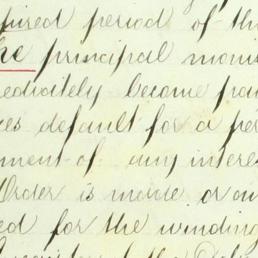 pired period of th
he principal moni
ediately become pay
es default for a per
ment of any intere
Order is made or an
ed for the winding